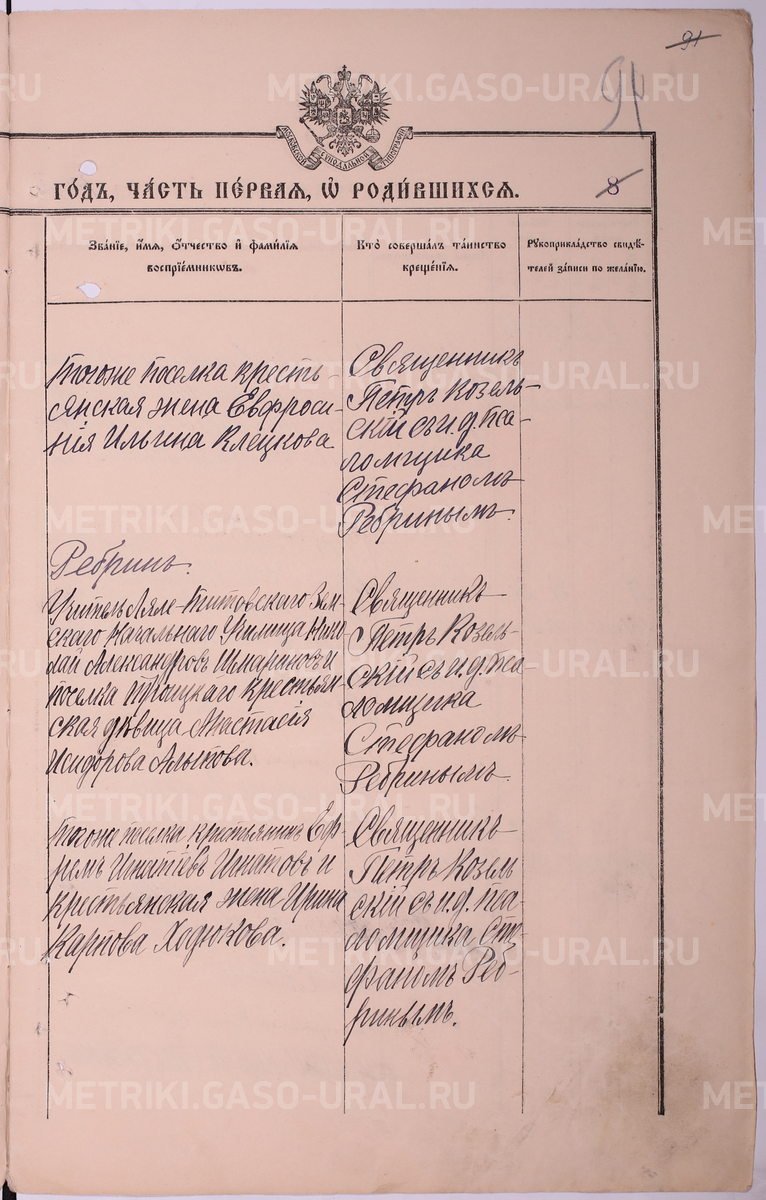 91
94
МОСКОВСКОЙ СѴНОДАЛЬНОЙ ТИПОГРАФІИ
ГО́ДЪ, ЧА́СТЬ ПЕ́РВАЯ, Ѡ҆ РОДИ́ВШИХСЯ.
8
Зва́нїе, и҆́мя, ѻ҆́тчество и҆ фами́лїя
воспрїе́мникѡвъ.
Кто̀ соверша́лъ та́инство
креще́нїя.
Рꙋкоприкла́дство свидѣ́-
телей за́писи по жела́нїю.
Тогоже поселка кресть-
янская жена Евфроси-
нія Ильина Клецкова
Священникъ
Петръ Козель-
скій съ и.д. пса-
ломщика
Стефаномъ
Ребринымъ.
Ребринъ.
Учитель Ляле-Титовскаго Зем-
скаго Начальнаго Училища Нико
лай Александровъ и
поселка Троицкаго крестьян-
ская дѣвица Анастасія
Исидорова Алыпова.
Священникъ
Петръ Козель-
скій съ и.д. пса-
ломщика
Стефаномъ
Ребринымъ.
Тогоже поселка крестьянинъ Еф-
ремъ Игнатіевъ Игнатовъ и
крестьянская жена Ирина
Карпова Ходюкова.
Священникъ
Петръ Козель
скій съ и.д. пса-
ломщика Сте-
фаномъ Реб-
ринымъ.
METRIKI.GASO-URAL.RU